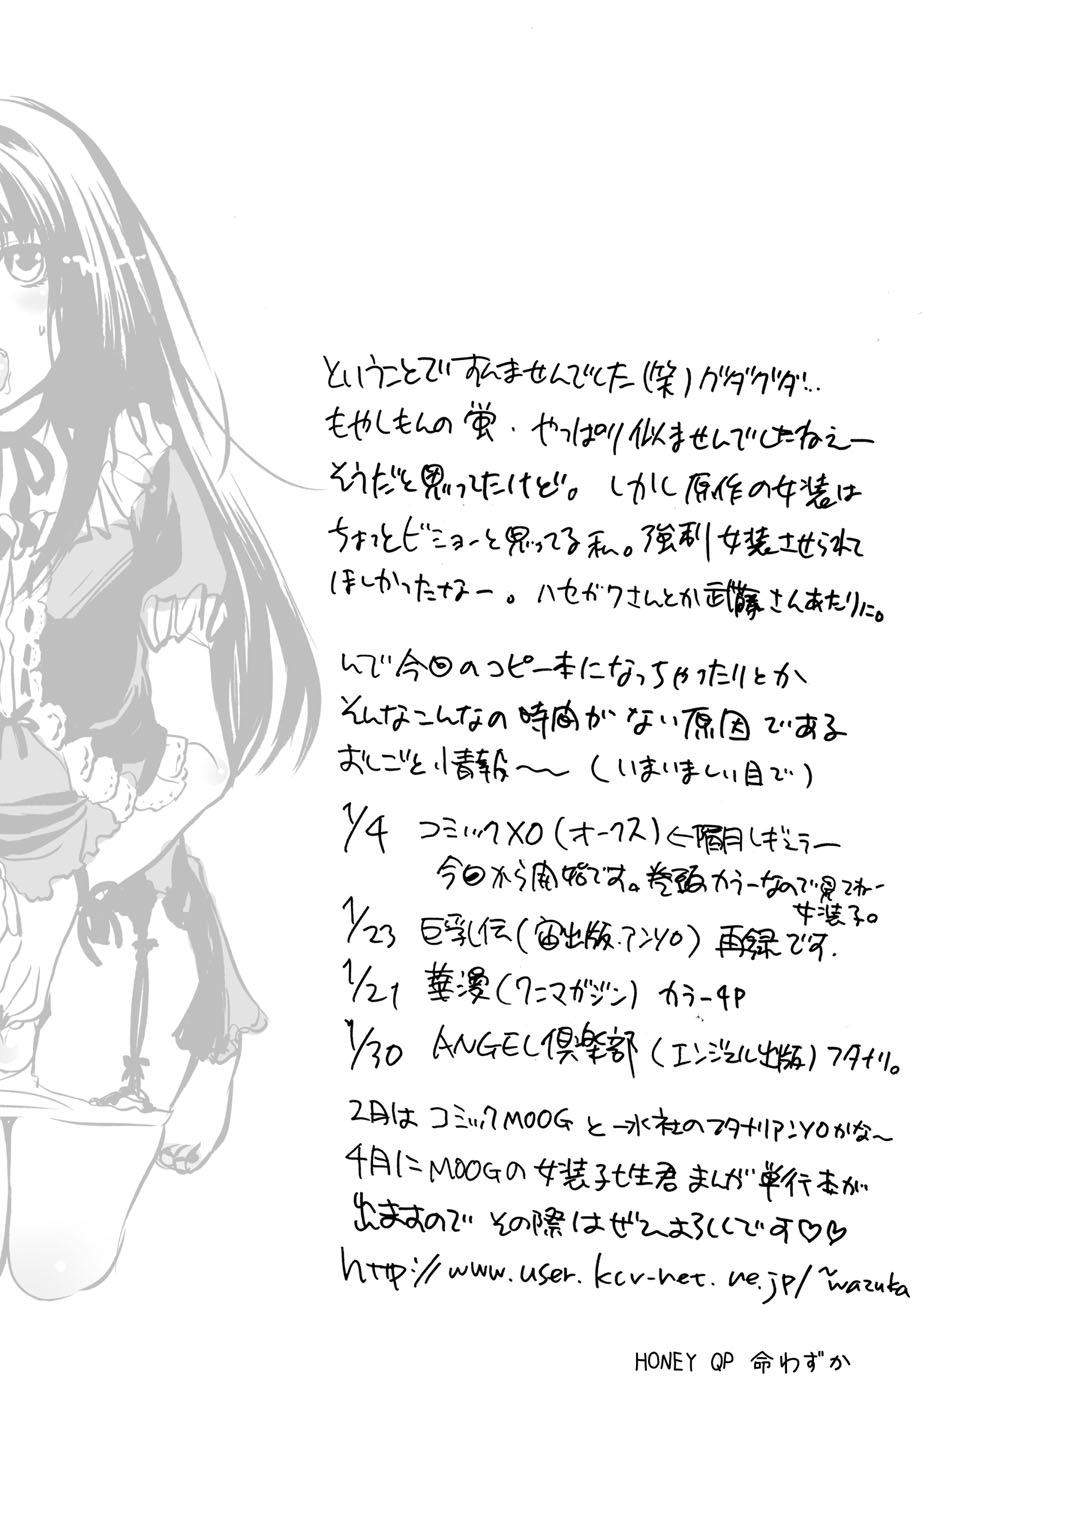 ということですんませんでした(笑)グダグダ…
もやしもんの蛍・やっぱり似ませんでしたねぇー
そうだと思ってたけど。しかし原作の女装は
ちょっとビミョーと思ってる私。強制女装させられて
ほしかったなー。ハセガワさんとか武藤さんあたりに。
んで今回のコピー本になっちゃったりとか
そんなこんなの時間がない原因である
おしごと情報〜〜(いまいましい目で)
1/4 コミックXO(オークス)←隔月レギュラー
今回から開始です。巻頭カラーなので見てねー
女装子。
1/23 巨乳伝(宙出版.アンソロ)再録です.
1/21 華漫(ワニマガジン)カラー4P
1/30 ANGEL倶楽部(エンジェル出版)フタナリ。
2月は コミックMOOGと一水社のフタナリアンソロかな〜
4月にMOOGの女装子七生君まんが単行本が
出ますのでその際はぜひよろしくです♡♡
http://www.user.kcv-net.ne.jp/~wazuka
HONEY QP 命わずか